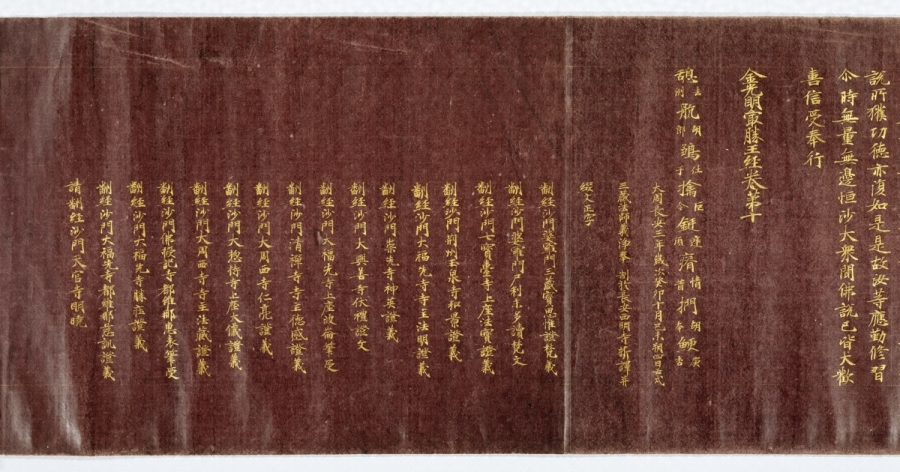 說所獲功德亦復如是是故汝等應勤修習
尒時無量無邊恒沙大衆聞佛說已皆大歡
喜信受奉行
金光明最勝王經卷第十
大周長安三年歲次癸卯十月己未朔四日壬戌
三藏法師義淨奉 制於長安西明寺新譯并
綴文正字
翻經沙門婆羅門三藏寶思惟證梵義
翻經沙門婆羅門尸利末多讀梵文
翻經沙門七寶臺寺上座法寶證義
翻經沙門荊州玉泉寺弘景證義
翻經沙門大福先寺寺主法明證義
翻經沙門崇先寺神英證義
翻經沙門大興善寺伏禮證文
翻經沙門大福先寺上座波崙筆受
翻經沙門清禪寺寺主德感證義
翻經沙門大周西寺仁亮證義
翻經沙門大惣持寺上座大儀證義
翻經沙門大周西寺寺主法藏證義
翻經沙門佛授記寺都維那惠表筆受
翻經沙門大福先寺勝莊證義
翻經沙門大福先寺都維那慈訓證義
請翻經沙門天宮寺明曉